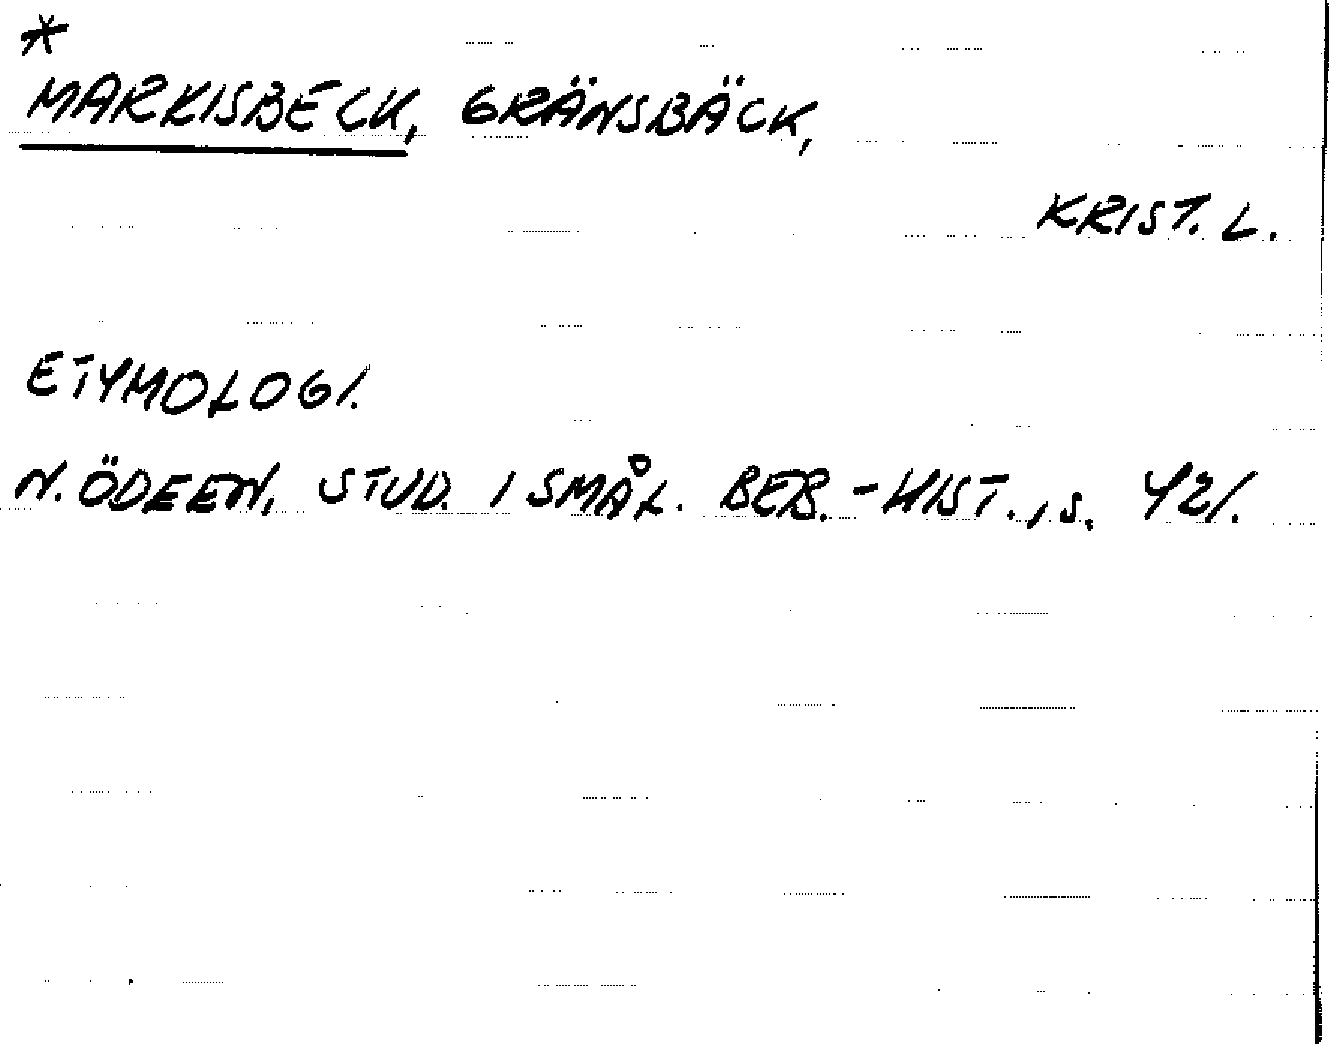 *
MARKISBECK, GRÄNSBÄCK,
KRIST. L.
ETYMOLOGI.
N. ÖDEEN, STUD. I SMÅL. BEB.-HIST., S. 421.